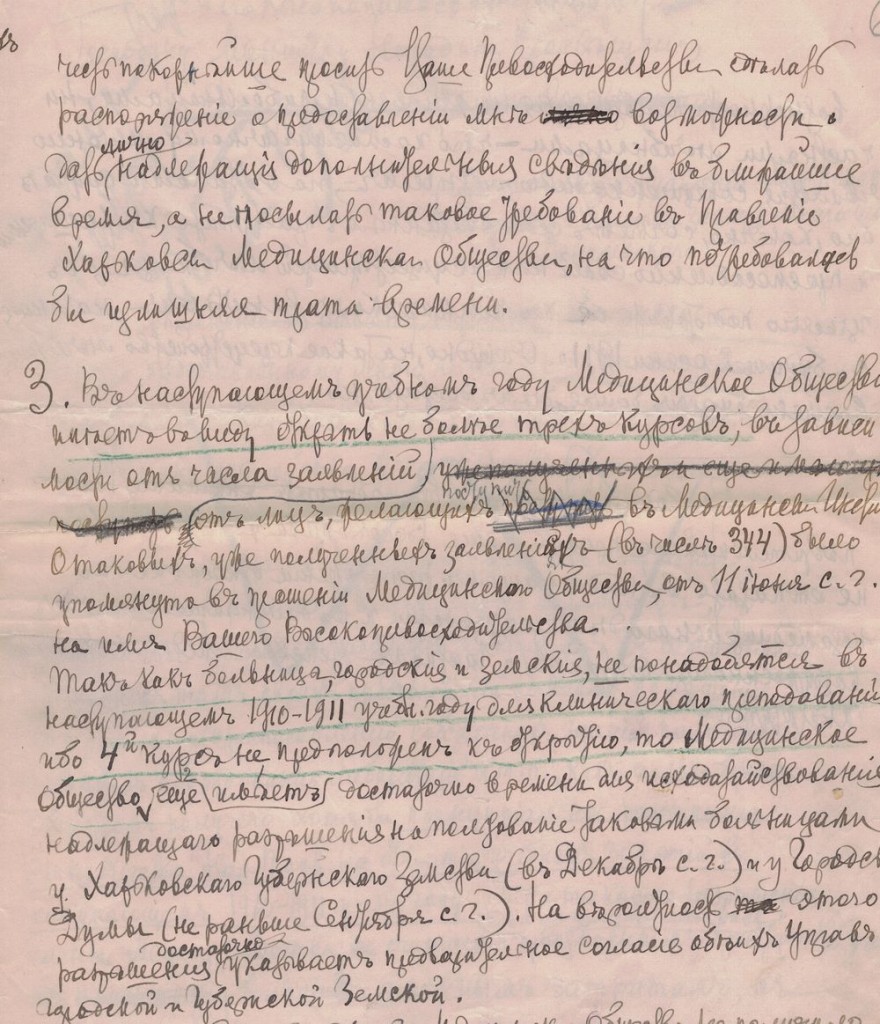 честь покорнѣйше просить Ваше Превосходительство сдѣлать
распоряженіе о предоставленіи мнѣ возможности
лично
дать надлежащія дополнительныя свѣдѣнія въ ближайшее
время, а не посылать таковое требованіе въ Правленіе
Харьковск. Медицинскаг. Общества, на что потребовалась
бы излишняя трата времени.
3. Въ наступающемъ учебномъ году Медицинское Общество
имѣетъ въ виду открыть не болѣе трехъ курсовъ, въ зависи
мости отъ числа заявленій
поступить
отъ лицъ, желающихъ въ Медицинскій
О таковыхъ, уже полученныхъ заявленіяхъ (въ числѣ 344) было
упомянуто въ прошеніи Медицинскаго Общества, отъ 11 іюня с. г.
на имя Вашего Высокопревосходительства.
Такъ какъ больница, городскія и земскія, не понадобятся въ
наступающемъ 1910-1911 учебн. году для клиническаго преподаванія
ибо 4й курсъ не предположенъ къ открытію, то Медицинское
Общество, еще имѣетъ достаточно времени для исходатайствованія
надлежащаго разрѣшенія на пользованіе таковыми больницами
у Харьковскаго Губернскаго Земства (въ Декабрѣ с. г.) и у Городск
Думы (не раньше Сентября с. г.). На вѣроятность этого
достаточно
разрѣшенія указываетъ предварительное согласіе обѣихъ Управъ
городской и Губернской Земской.